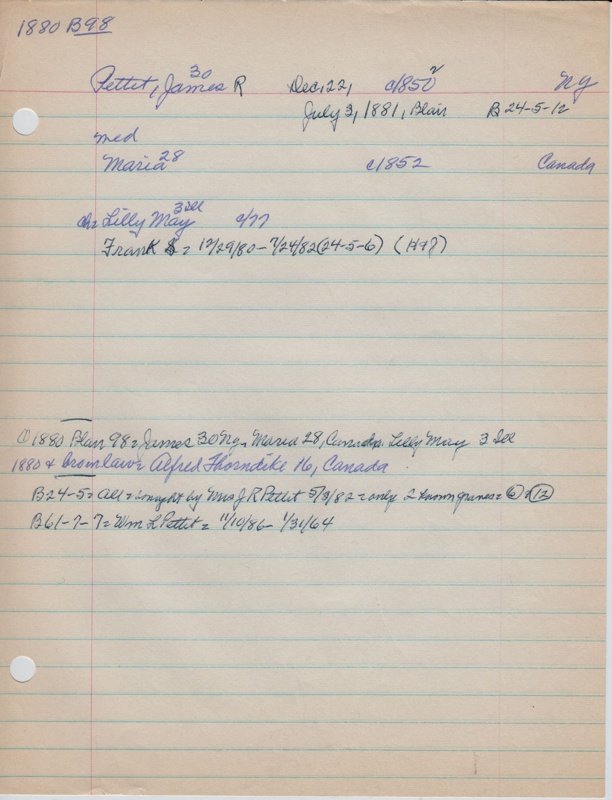 1880 B98
Pettit, James 30 R Dec, 22, c/1850 2 NY
July 3, 1881, Blair B 24-5-12
med
Maria 28 c/1852 Canada
ch= Lilly May 3 Ill c/77
Frank = 12/29/80 - 7/24/82 (24-5-6) (H98)
① 1880 Blair 98 = James 30 Ny, Maria 28, Canada. Lilly May 3 Ill
1880 + brornlaw = Alfred Thorndike 16, Canada
B24-5 = all = bought by Mrs J. R Pettit 5/3/82 = only 2 known graves = ⑥ & ⑫
B61-7-7 = Wm L Pettit = 11/10/86 - 1/31/64